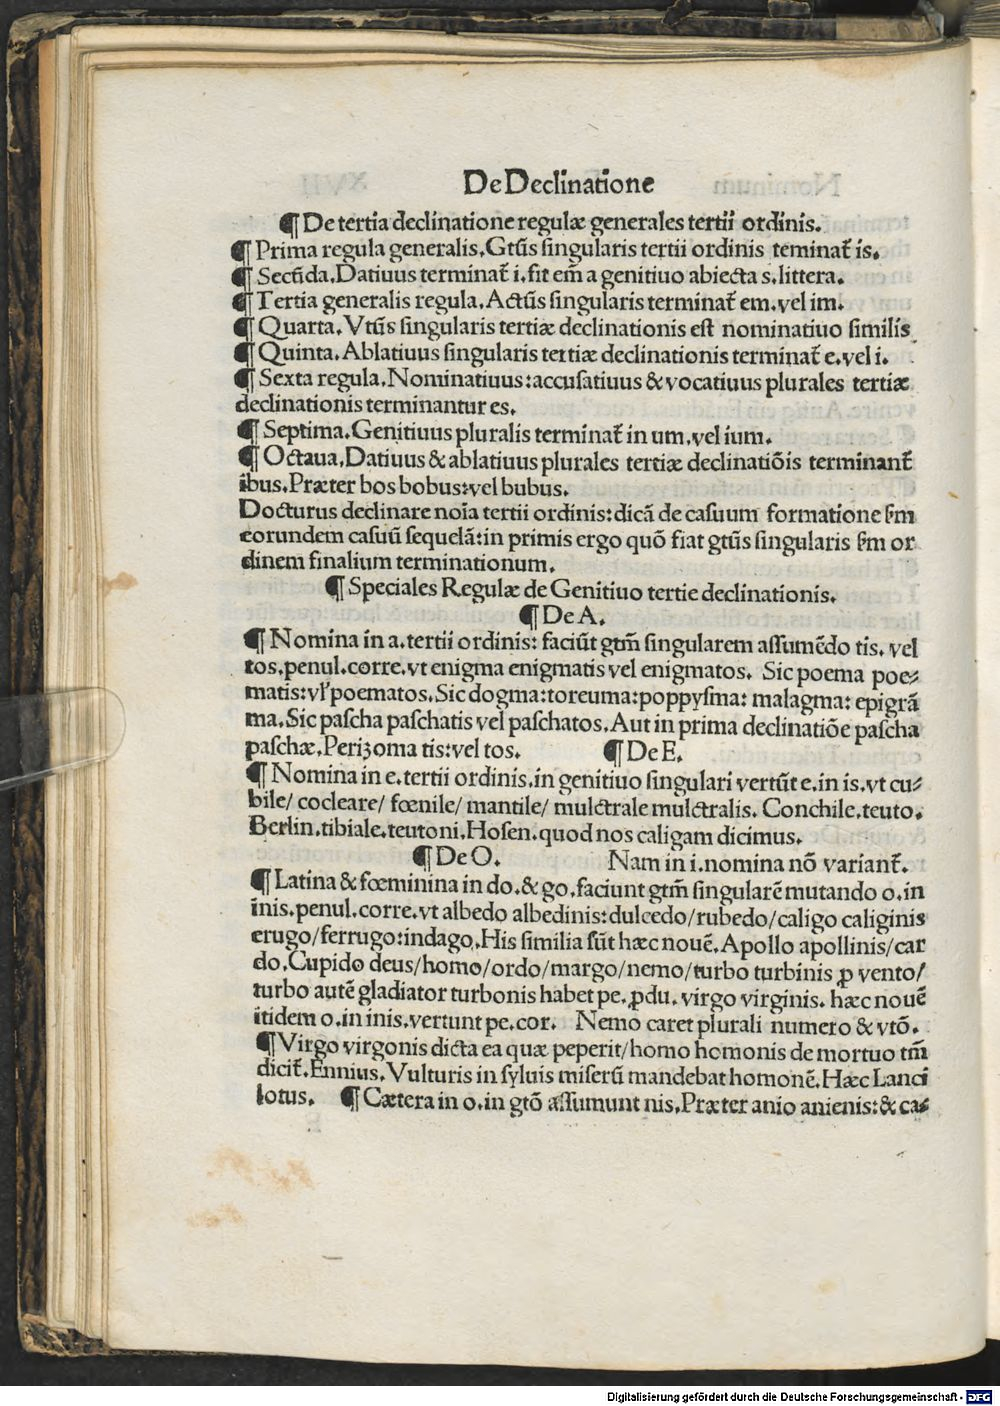 De Declinatione
¶ De tertia declinatione regulæ generales tertii ordinis.
¶ Prima regula generalis. Gtūs singularis tertii ordinis teminat̄ is.
¶ Secūda. Datiuus terminat̄ i. fit em̄ a genitiuo abiecta s. littera.
¶ Tertia generalis regula. Actūs singularis terminat̄ em. vel im.
¶ Quarta. Vtūs singularis tertiæ declinationis est nominatiuo similis
¶ Quinta. Ablatiuus singularis tertiæ declinationis terminat̄ e. vel i.
¶ Sexta regula. Nominatiuus: accusatiuus & vocatiuus plurales tertiæ
declinationis terminantur es.
¶ Septima. Genitiuus pluralis terminat̄ in um. vel ium.
¶ Octaua. Datiuus & ablatiuus plurales tertiæ declinatiōis terminant̄
ibus. Præter bos bobus: vel bubus.
Docturus declinare noīa tertii ordinis: dicā de casuum formatione ſm̄
eorundem casuū sequelā: in primis ergo quō fiat gtūs singularis ſm̄ or
dinem finalium terminationum.
¶ Speciales Regulæ de Genitiuo tertie declinationis.
¶ De A.
¶ Nomina in a. tertii ordinis: faciūt gtm̄ singularem assumēdo tis. vel
tos. penul. corre. vt enigma enigmatis vel enigmatos. Sic poema poe-
matis: vl' poematos. Sic dogma: toreuma: poppysma: malagma: epigrā
ma. Sic pascha paschatis vel paschatos. Aut in prima declinatiōe pascha
paschæ. Perizoma tis: vel tos. ¶ De E.
¶ Nomina in e. tertii ordinis. in genitiuo singulari vertūt e. in is. vt cu-
bile/ cocleare/ fœnile/ mantile/ mulctrale mulctralis. Conchile. teuto.
Berlin. tibiale. teutoni. Hosen. quod nos caligam dicimus.
¶ De O. Nam in i. nomina nō variant̄.
¶ Latina & fœminina in do. & go. faciunt gtm̄ singularē mutando o. in
inis. penul. corre. vt albedo albedinis: dulcedo/ rubedo/ caligo caliginis
erugo/ ferrugo: indago. His similia sūt hæc nouē. Apollo apollinis/ car
do. Cupido deus/ homo/ ordo/ margo/ nemo/ turbo turbinis ꝓ vento/
turbo autē gladiator turbonis habet pe. ꝓdu. virgo virginis. hæc nouē
itidem o. in inis. vertunt pe. cor. Nemo caret plurali numero & vtō.
¶ Virgo virgonis dicta ea quæ peperit/ homo homonis de mortuo tm̄
dicit̄. Ennius. Vulturis in syluis miserū mandebat homonē. Hæc Lanci
lotus. ¶ Cætera in o. in gtō assumunt nis. Præter anio anienis: & ca-
Digitalisierung gefördert durch die Deutsche Forschungsgemeinschaft - DFG